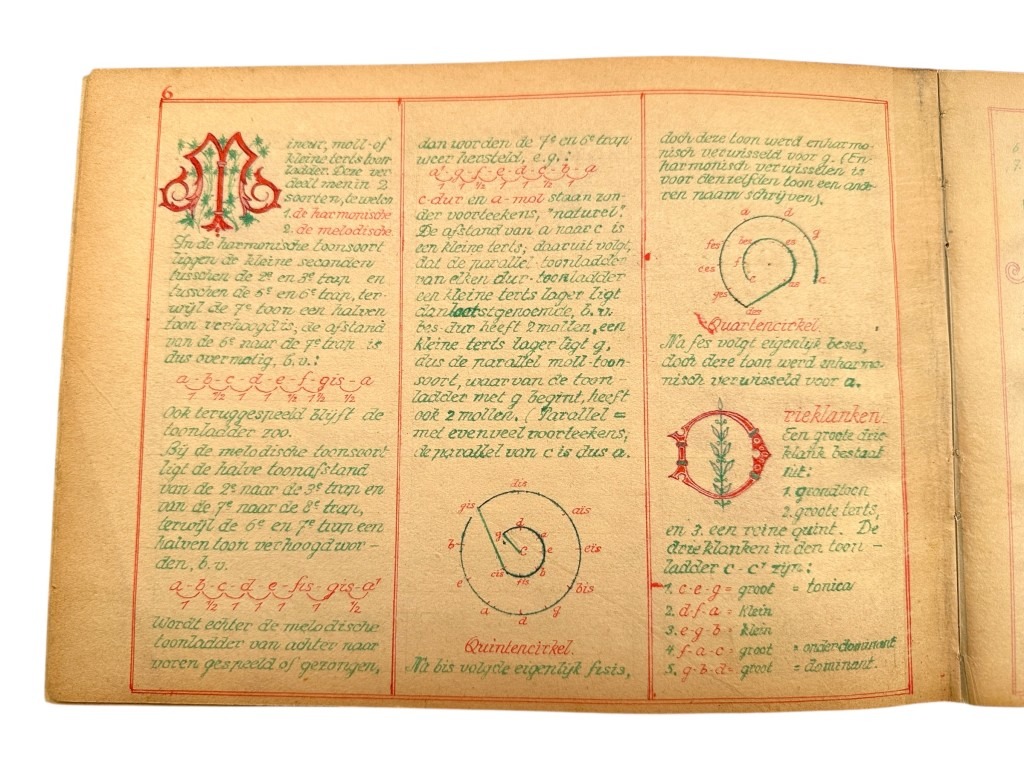 6
Mineur, moll- of
kleine terts toon-
ladder. Deze ver-
deelt men in 2
soorten, te weten
1. de harmonische
2. de melodische.
In de harmonische toonsoort
liggen de kleine seconden
tusschen de 2e en 3e trap en
tusschen de 5e en 6e trap, ter-
wijl de 7e toon een halven
toon verhoogd is; de afstand
van de 6e naar de 7e trap is
dus overmatig, b.v.:
a-b-c-d-e-f-gis-a
1 ½ 1 1 ½ 1½ ½
Ook teruggespeeld blijft de
toonladder zoo.
Bij de melodische toonsoort
ligt de halve toonafstand
van de 2e naar de 3e trap en
van de 7e naar de 8e trap,
terwijl de 6e en 7e trap een
halven toon verhoogd wor-
den, b.v.
a-b-c-d-e-fis-gis-a¹
1 ½ 1 1 1 1 ½
Wordt echter de melodische
toonladder van achter naar
voren gespeeld of gezongen,
dan worden de 7e en 6e trap
weer hersteld, e.g.:
a¹ g f e d c b a
1 1 ½ 1 1 ½ 1
c-dur en a-mol staan zon-
der voorteekens, "naturel".
De afstand van a naar c is
een kleine terts; daaruit volgt,
dat de parallel-toonladder
van elken dur-toonladder
een kleine terts lager ligt
dan laatstgenoemde, b.v.
bes-dur heeft 2 mollen, een
kleine terts lager ligt g,
dus de parallel moll-toon-
soort, waarvan de toon-
ladder met g begint, heeft
ook 2 mollen. (Parallel =
met evenveel voorteekens;
de parallel van c is dus a.
dis
gis
ais
d
g
a
b
c
e
eis
cis
b
fis
e
bis
a
g
d
Quintencirkel.
Na bis volgde eigenlijk fisis,
doch deze toon werd enharmo-
nisch verwisseld voor g. (En-
harmonisch verwisselen is
voor denzelfden toon een ande-
ren naam schrijven).
a
d
fes
bes
es
g
ces
f
c
as
c
ges
des
Quartencirkel.
Na fes volgt eigenlijk beses,
doch deze toon werd enharmo-
nisch verwisseld voor a.
Drieklanken.
Een groote drie-
klank bestaat
uit:
1. grondtoon
2. groote terts,
en 3. een reine quint. De
drieklanken in den toon-
ladder c - c¹ zijn:
1. c-e-g = groot = tonica
2. d-f-a = klein
3. e-g-b = klein
4. f-a-c = groot = onder-dominant
5. g-b-d = groot = dominant.